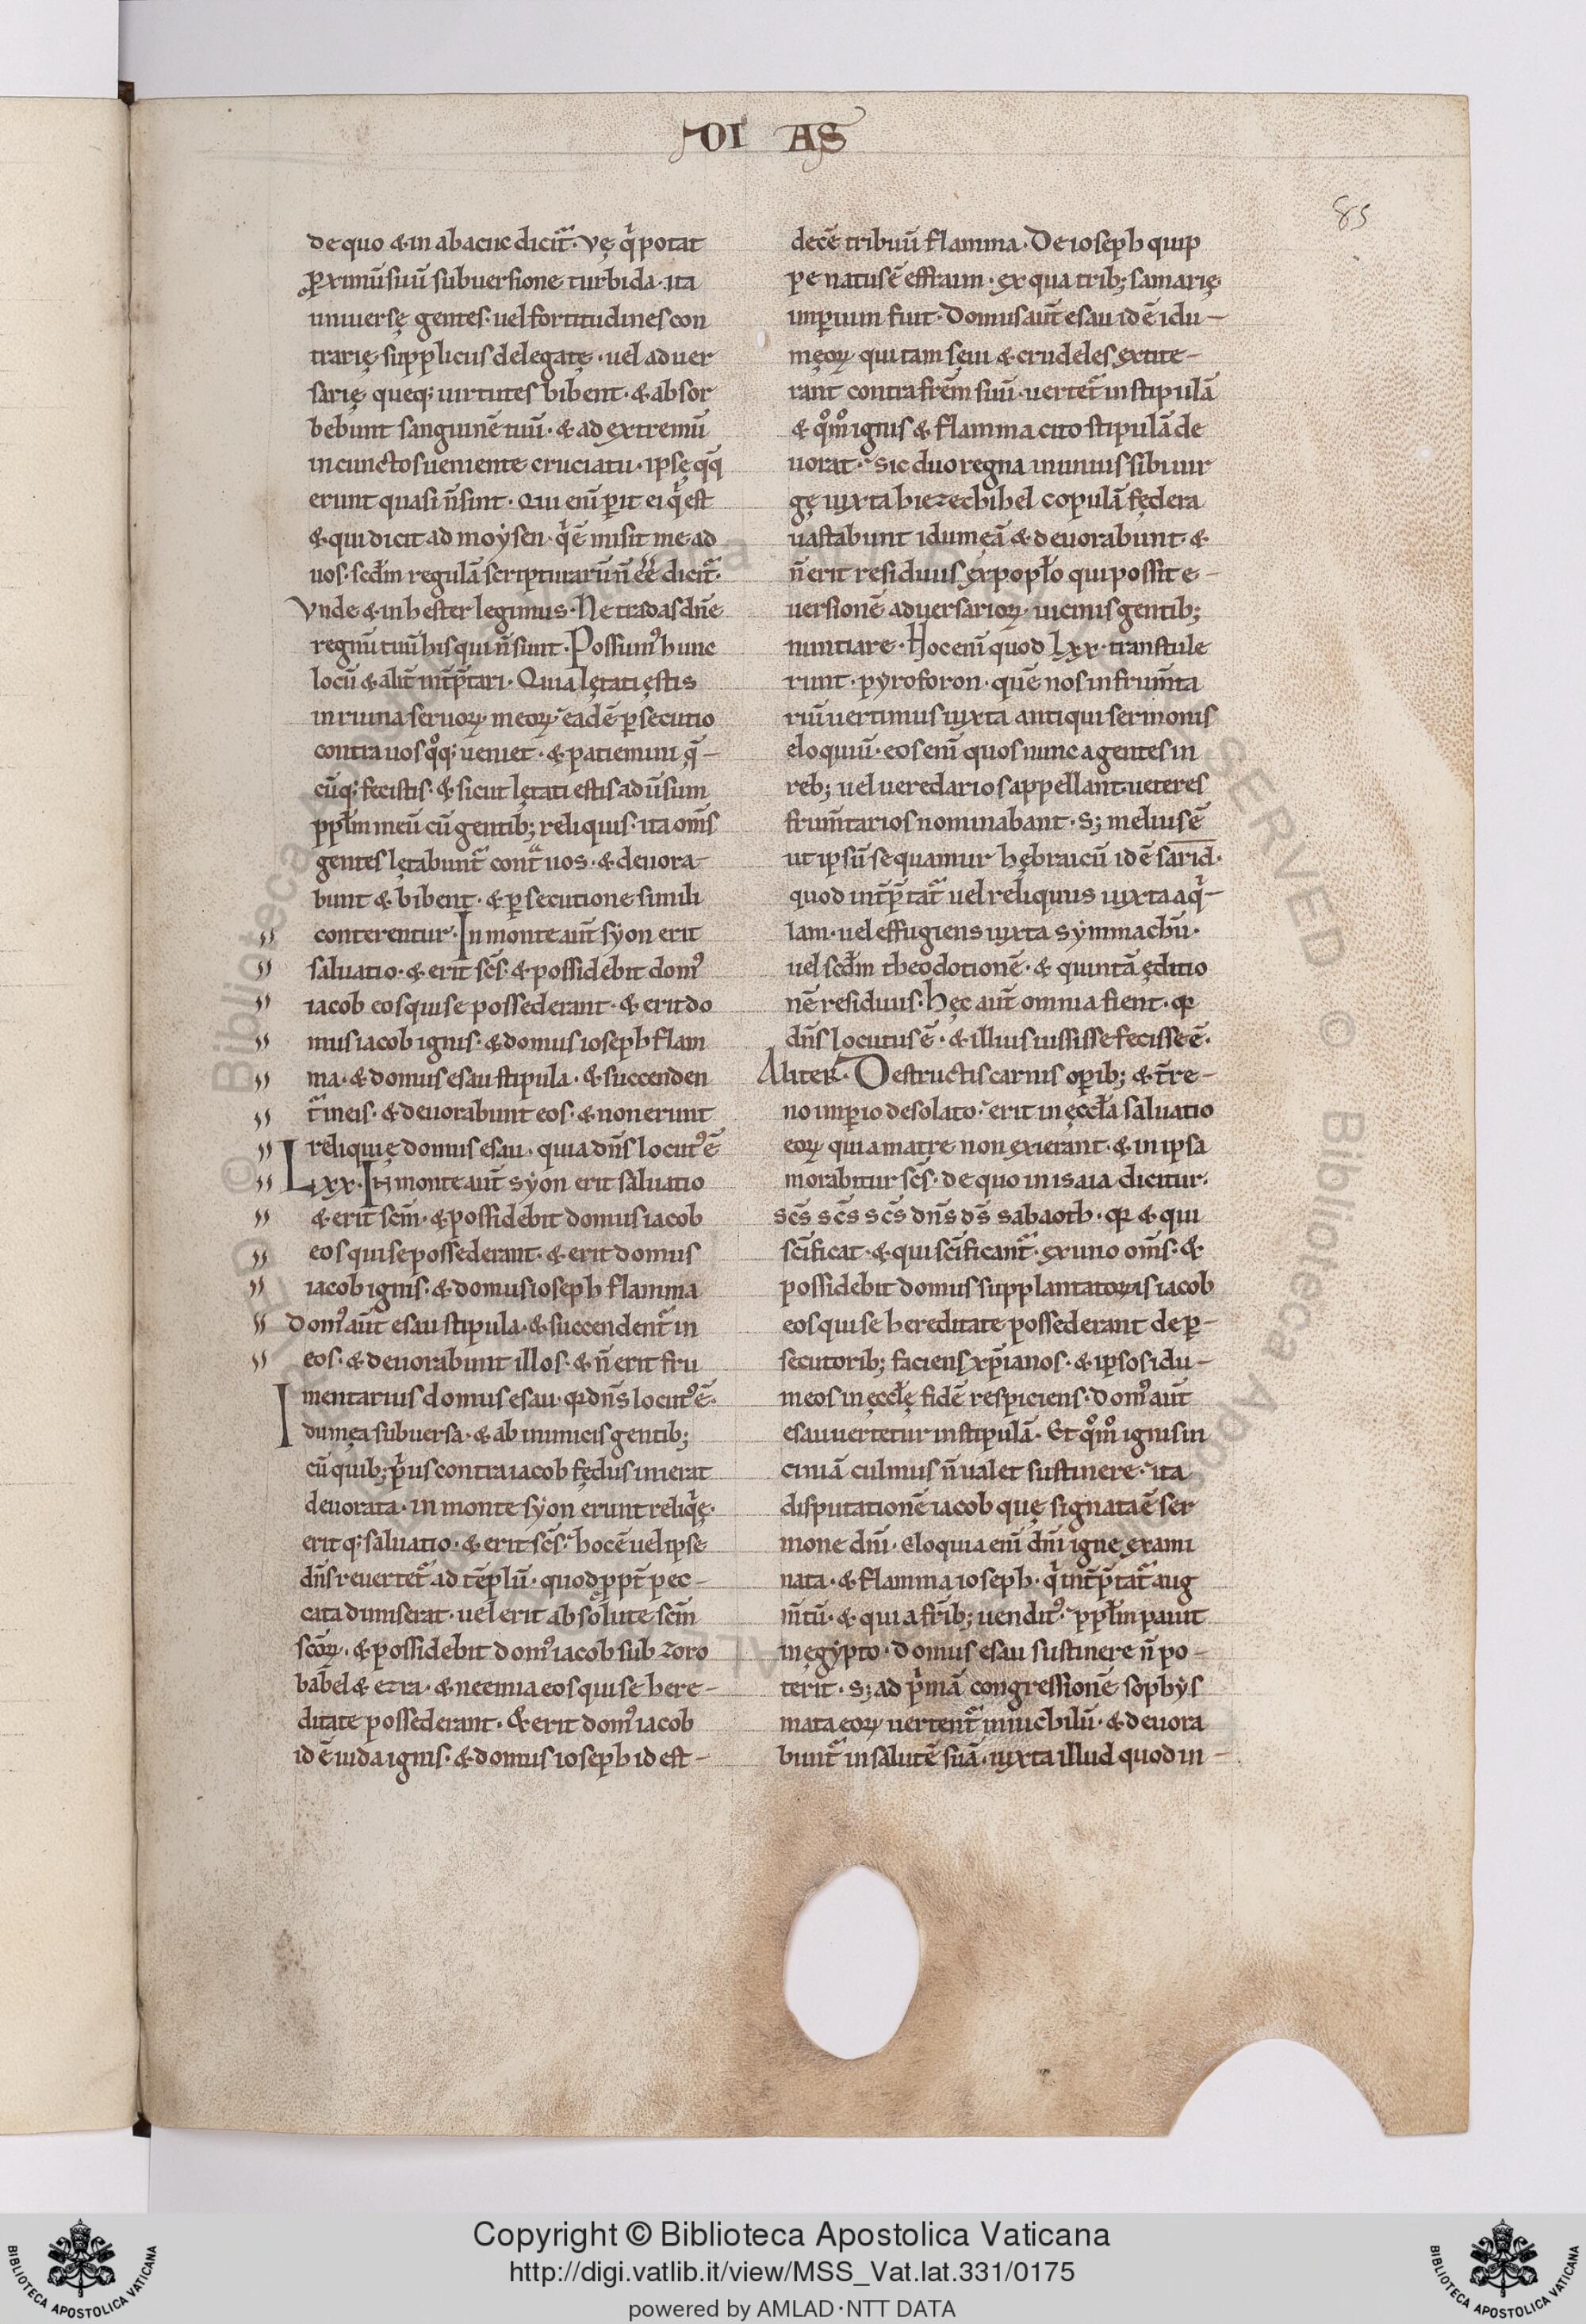 DI AS
85
de quo & in abacuc dicit᷑. Vę q̇ potat
ꝓximū suū subuersione turbida. ita
uniuersę gentes. uel fortitudines con
trarię suppliciis delegatę. uel aduer
sarię queq; uirtutes bibent. & absor
bebunt sanguinē tuū. & ad extremū
in cunctos ueniente cruciatu. ipsę qͣq̄
erunt quasi n̄ sint. Qui eni̅ perit ei q̇ est
& qui dicit ad moẏsen. q̇ ē misit me ad
uos. scd̄m regulā scripturarū n̄ ēē dicit᷑.
Vnde & in hester legimus. Ne tradas dn̄e
regnū tuū his qui n̄ sunt. Possumꝰ hunc
locū & alit̄ int̄p̄tari. Quia lętati ęstis
in ruina seruoꝝ meoꝝ. eadē ꝑsecutio
contra uos qͦq; ueniet. & patiemini q̄-
cūq; fecistis. & sicut lętati estis aduersum
pplm̄ meū cū gentib; reliquis. ita om̄s
gentes lętabunt᷑ contͣ uos. & deuora-
bunt & bibent. & ꝑsecutione simili
conterentur. In monte aut̄ syon erit
saluatio. & erit sc̄s. & possidebit domꝰ
iacob eos qui se possederant. & erit do
mus iacob ignis. & domus ioseph flam
ma. & domus esau stipula. & succenden
t᷑ in eis. & deuorabunt eos. & non erunt
reliquię domus esau. quia dn̄s locutꝰ ē
Lxx. In monte aut̄ syon erit saluatio
& erit sc̄m. & possidebit domus iacob
eos qui se possederant. & erit domus
iacob ignis. & domus ioseph flamma
domꝰ aut̄ esau stipula. & succendent᷑ in
eos. & deuorabunt illos. & n̄ erit fru
mentarius domus esau. qꝛ dn̄s locutꝰ ē.
Idumęa subuersa. & ab inimicis gentib;
cū quib; pͥus contra iacob fędus inierat
deuorata. in monte syon erunt reliqͥę.
eritq; saluatio. & erit sc̄s. hoc ē uel ipse
dn̄s reuertet᷑ ad tēplū. quod ppt̄ pec-
cata dimiserat. uel erit absolute sc̄m
sc̄oꝝ. & possidebit domꝰ iacob sub zoro
babel & ezra. & neemia eos qui se here-
ditate possederant. & erit domꝰ iacob
id ē iuda ignis. & domus ioseph id est-
decē tribuū flamma. De ioseph quip
pe natus ē effraim. ex qua trib; samarię
imꝑium fuit. Domus aut̄ esau id ē idu-
męoꝝ qui tam sęui & crudeles extite-
rant contra frēm suū. uertet᷑ in stipulā
& qͦmͦ ignis & flamma cito stipulā de
uorat. sic duo regna in unius sibi uir
gę iuxta hiezechihel copulā fędera
uastabunt idumęā & deuorabunt. &
n̄ erit residuus ex poplo qui possit e-
uersionē aduersarioꝝ uicinis gentib;
nuntiare. Hoc eni̅ quod Lxx. transtule
runt. pyroforon. quē nos in frum̄ta
riū uertimus iuxta antiqui sermonis
eloquiū. eos eni̅ quos nunc agentes in
reb; uel ueredarios appellant. ueteres
frum̄tarios nominabant. S; melius ē
ut ipsū sequamur hębraicū id ē sarid.
quod int̄p̄tat᷑ uel reliquus iuxta aqͥ-
lam. uel effugiens iuxta sẏmmachū.
uel scd̄m theodotionē. & quintā ęditio
nē residuus. Hęc aut̄ omnia fient. qꝛ
dn̄s locutus ē. & illius iussisse fecisse ē.
AliteR. Destructis carnis oꝑib; & t̄re-
no imꝑio desolato. erit in ęccl̄a saluatio
eoꝝ qui a matre non exierant. & in ipsa
morabitur sc̄s. de quo in isaia dicitur.
sc̄s sc̄s sc̄s dn̄s ds̄ sabaoth. qꝛ & qui
sc̄ificat. & qui sc̄ificant᷑. ex uno om̄s. &
possidebit domus supplantatoris iacob
eos qui se hereditate possederant de ꝑ-
secutorib; faciens xp̄ianos. & ipsos idu-
meos in ęccl̄ę fidē respiciens. domꝰ aut̄
esau uertetur in stipulā. Et qͦmͦ ignis ui
ciniā culmus n̄ ualet sustinere. ita
disputationē iacob quę signata ē ser
mone dn̄i. Eloquia eni̅ dn̄i igne exami
nata. & flamma ioseph. q̇ int̄p̄tat᷑ aug
m̄tū. & qui a fr̄ib; venditꝰ. pplm̄ pauit
in ęgẏpto. domus esau sustinere n̄ po-
terit. S; ad pͥmā congressionē sophẏs
mata eoꝝ uertent᷑ in iuchilū. & deuora
bunt᷑ in salutē suā. iuxta illud quod in-
Copyright © Biblioteca Apostolica Vaticana
http://digi.vatlib.it/view/MSS_Vat.lat.331/0175
powered by AMLAD·NTT DATA
BIBLIOTECA APOSTOLICA VATICANA
BIBLIOTECA APOSTOLICA VATICANA